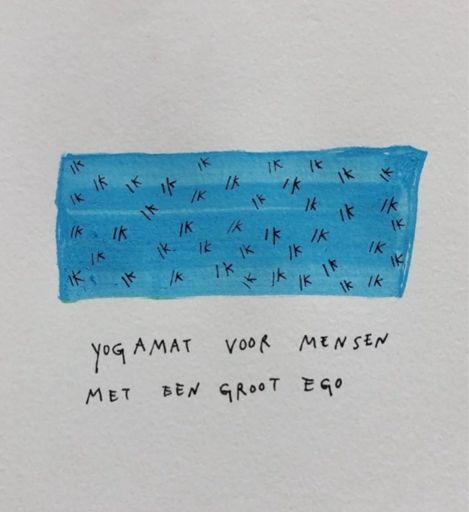 IK IK IK IK IK IK
IK IK IK IK IK
IK IK IK IK IK IK IK
IK IK IK IK IK IK IK
IK IK IK IK IK IK IK
IK IK IK IK IK IK IK IK IK IK
YOGAMAT VOOR MENSEN
MET EEN GROOT EGO